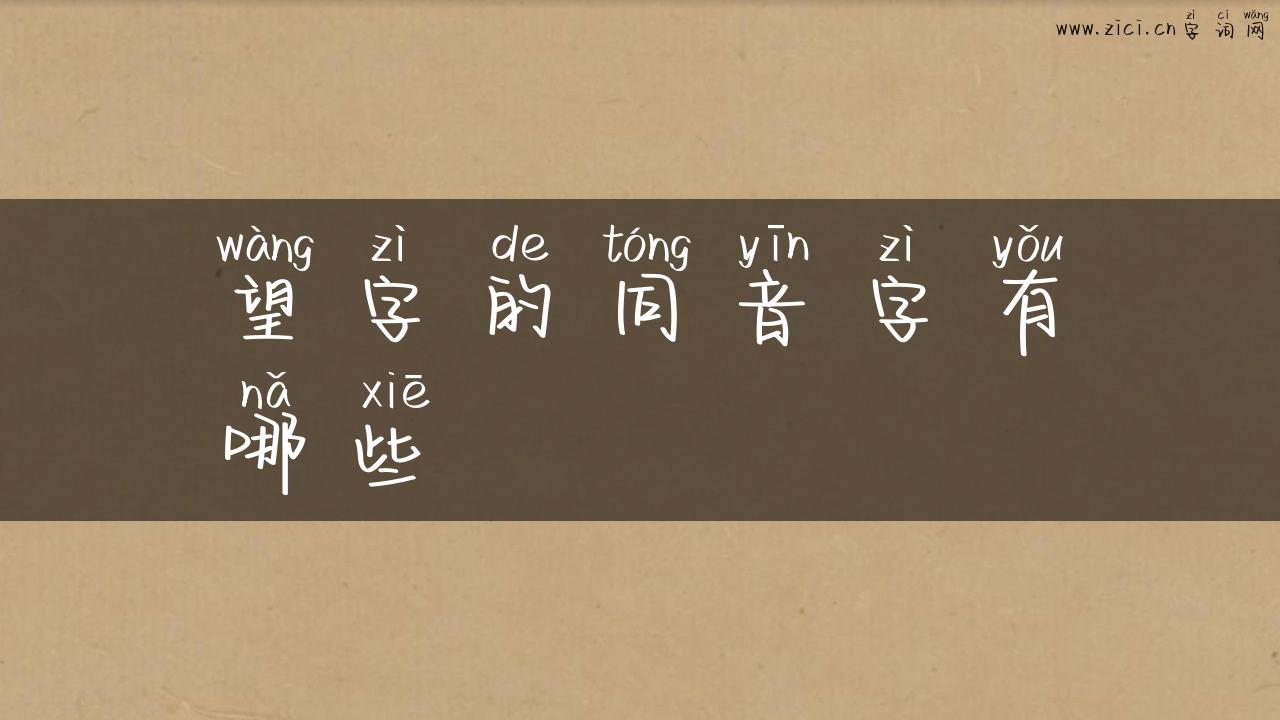 zì cí wǎng
www.zici.cn 字词网
wàng zì de tóng yīn zì yǒu
望字的同音字有
nǎ xiē
哪些